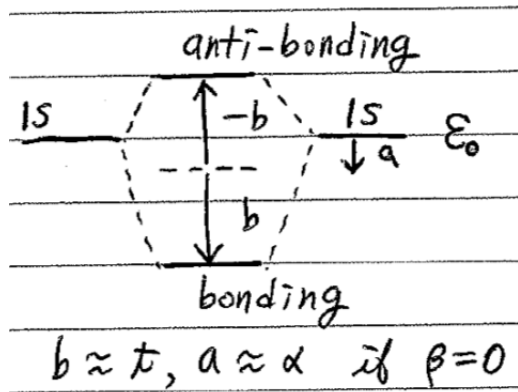 anti-bonding
1S
-b
1S
ε₀
a
b
bonding
b ≈ t, a ≈ α if β=0